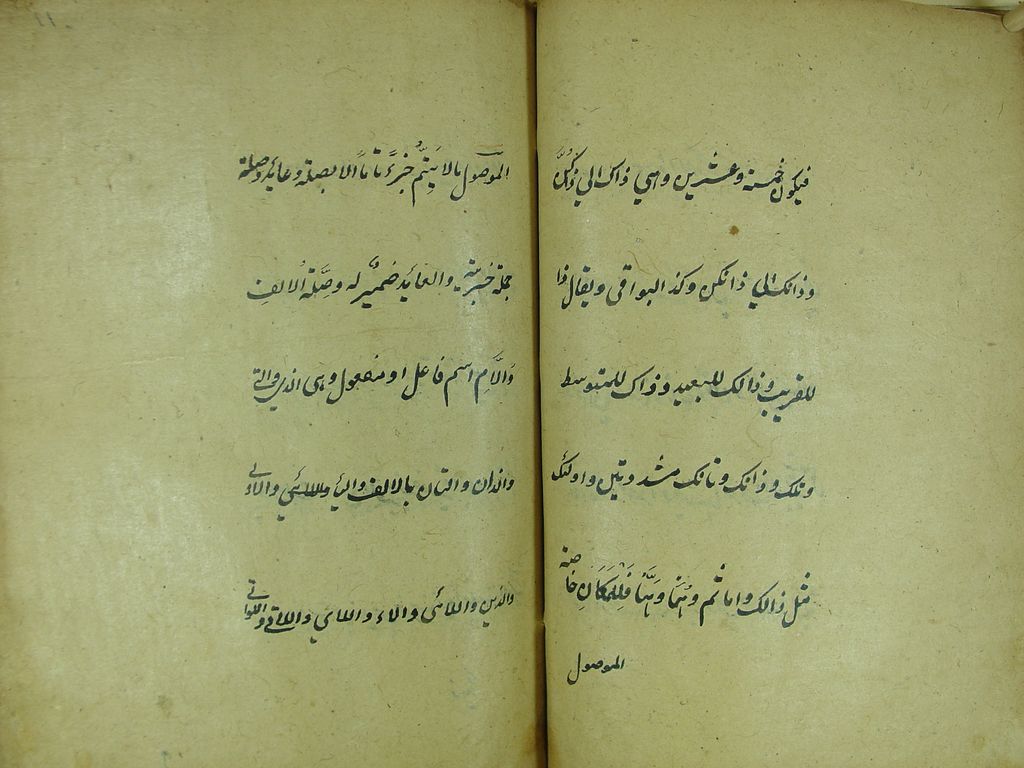 فيكون خمسة وعشرين وهي ذاك الي ذاكُنَّ
وذانك الي ذانكن وكذ البواقي ويقال ذا
للقريب وذالك للبعيد وذاك للمتوسط
وتلك وذانك وتانك مشددتين واولئك
مثل ذالك واما ثم وهُنا وهَنَّا فَلِلمَكَانِ خاصة
الموصول
الموصول مالا يَتِمُّ جزءً تامًا الا بصلة وعائد وصلته
جملة خبرية والعايد ضميرٌ له وصِلَة الالف
وَاللَّامِ اسم فاعل او مفعول وهى الذي والتي
والذان والتان بالالف واليأ والاُلئي والاء لى
والذين واللائى والاء واللاي واللاتي واللواتي
١١